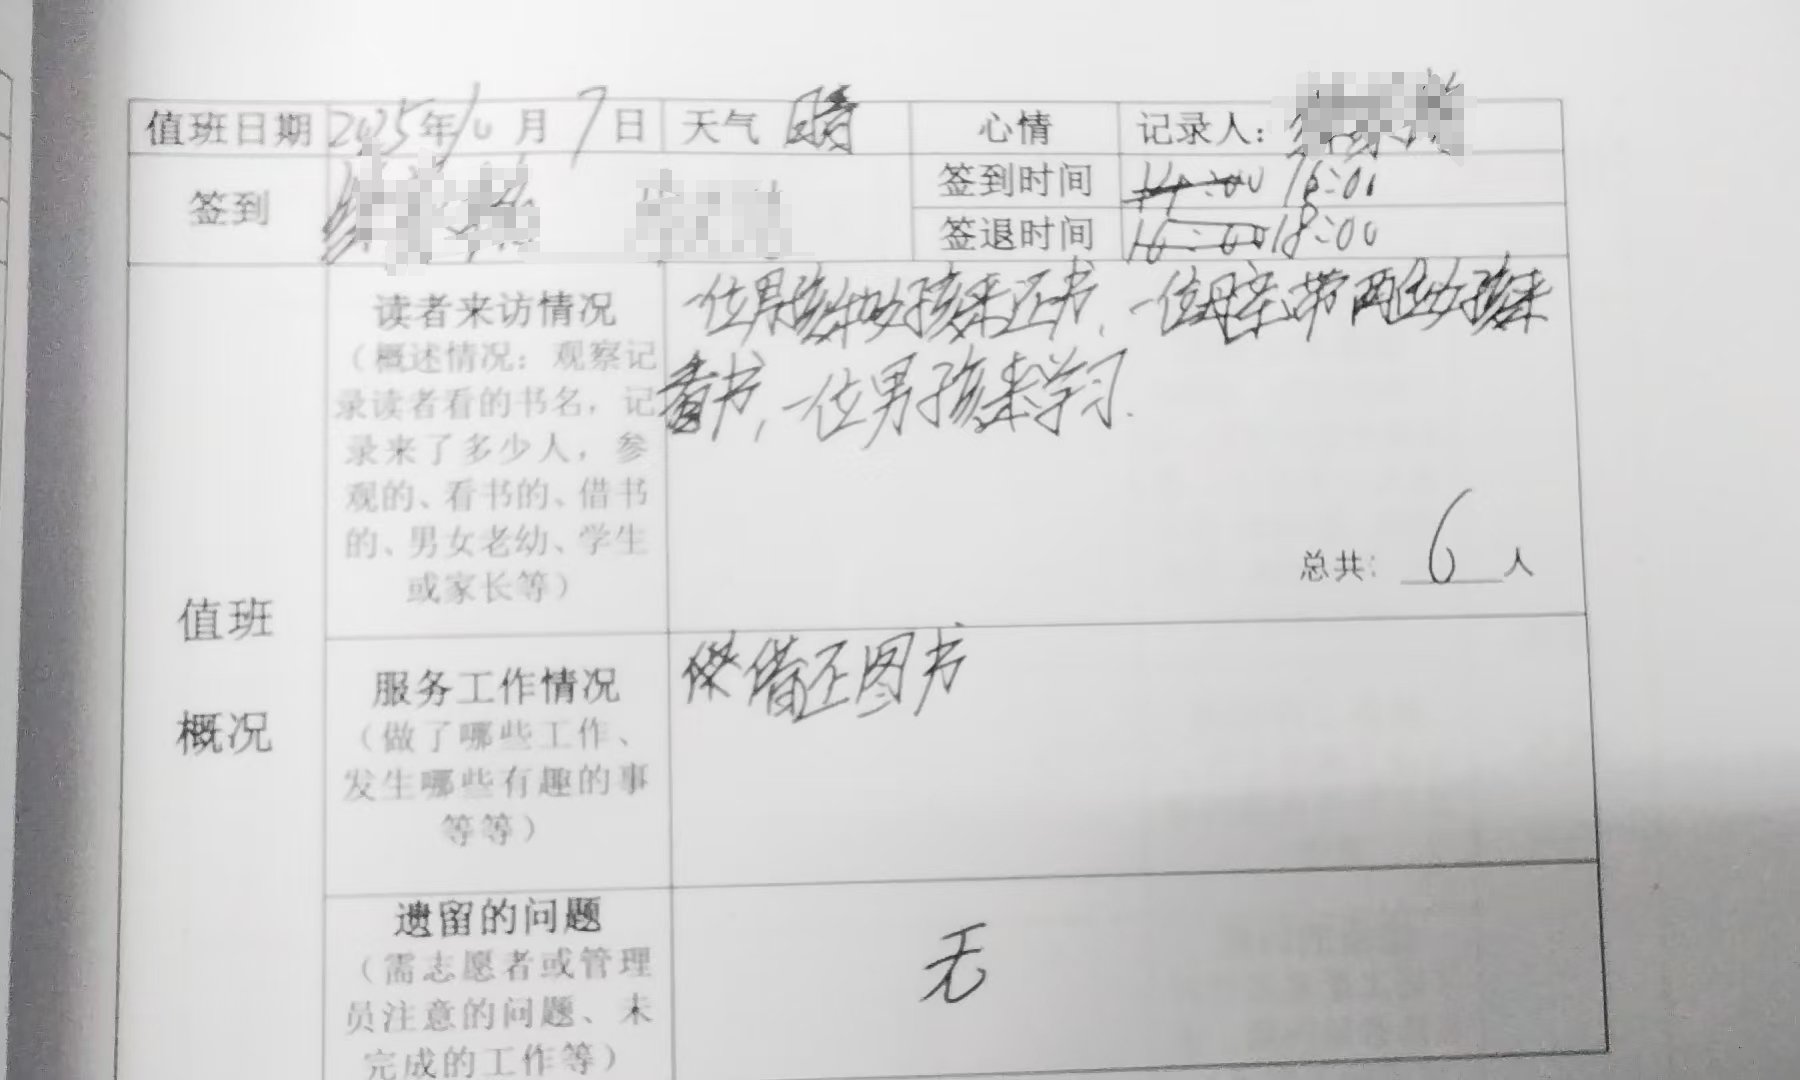 值班日期 2025年10月7日 天气 晴 心情 记录人：
签到 签到时间 14:00 16:00
签退时间 16:00 18:00
值班
概况
读者来访情况
（概述情况：观察记
录读者看的书名，记
录来了多少人，参
观的、看书的、借书
的、男女老幼、学生
或家长等）
一位男孩和女孩来还书，一位母亲带两位女孩来
看书，一位男孩来学习.
总共：6人
服务工作情况
（做了哪些工作、
发生哪些有趣的事
等等）
借还图书
遗留的问题
（需志愿者或管理
员注意的问题、未
完成的工作等）
无